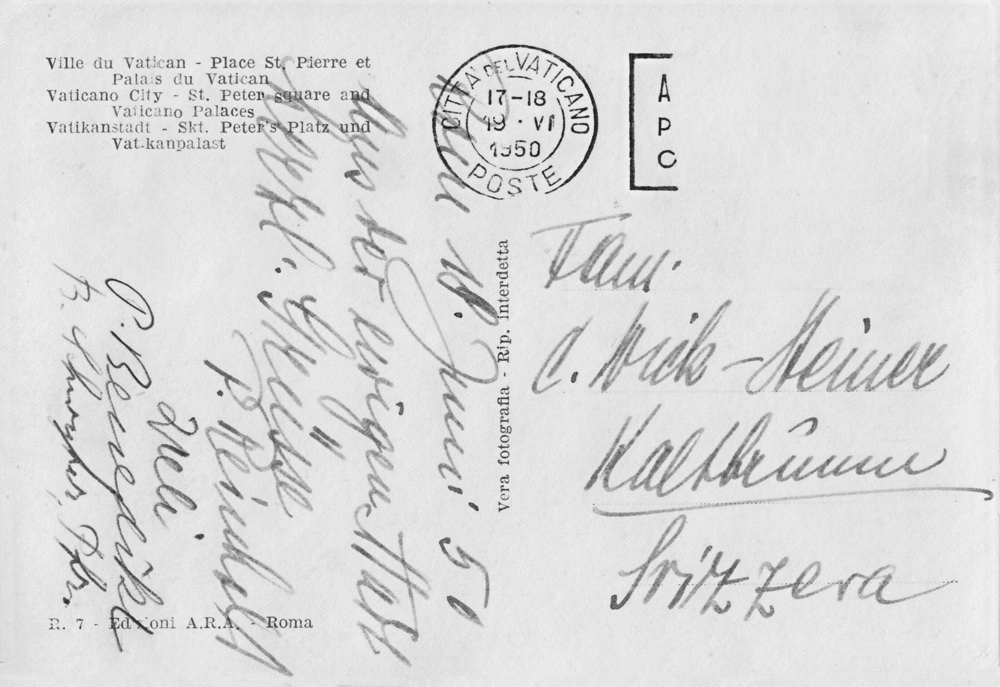 Ville du Vatican - Place St. Pierre et
Palais du Vatican
Vaticano City - St. Peter square and
Vaticano Palaces
Vatikanstadt - Skt. Peter's Platz und
Vatikanpalast
CITTA' DEL VATICANO
17-18
19 · VI
1950
POSTE
A
P
C
18. Juni 50
Aus der ewigen Stadt
herzl. Grüsse
P. Reinhold
Ueli
P. Benedikt
B.
Vera fotografia - Rip. interdetta
Fam.
C. Wick-Steiner
Kaltbrunn
Svizzera
R. 7 - Edizioni A.R.A. - Roma